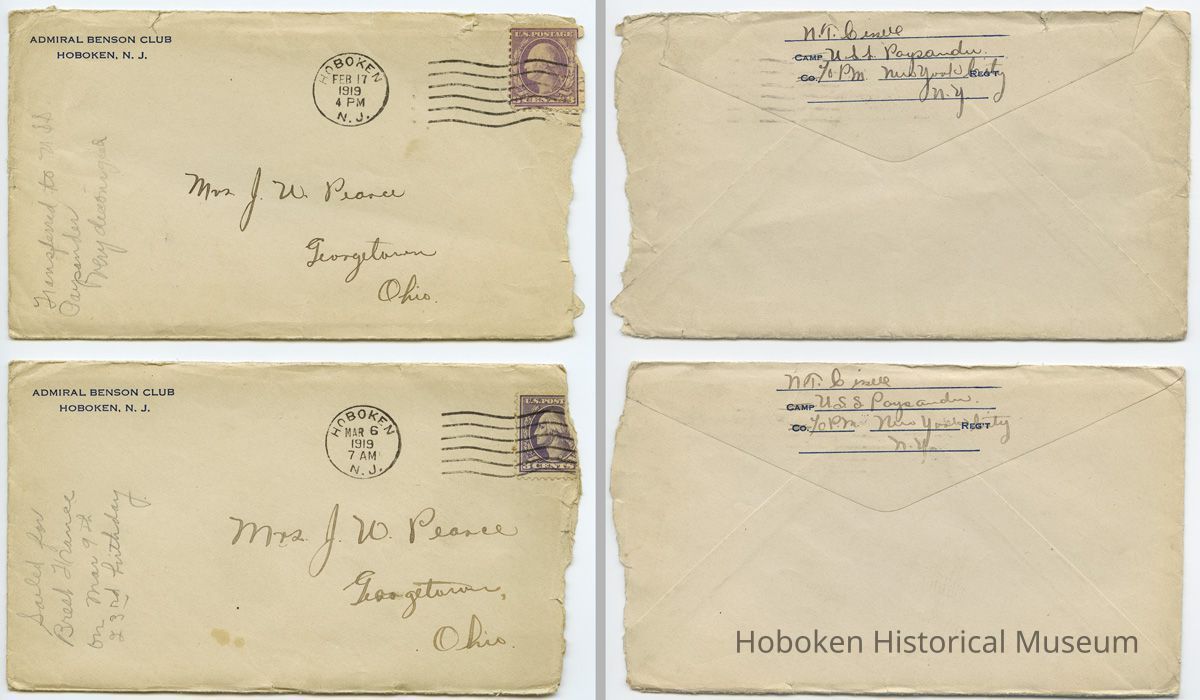 ADMIRAL BENSON CLUB
HOBOKEN, N. J.
HOBOKEN
FEB 17
1919
4 PM
N. J.
U.S. POSTAGE
3 CENTS 3
Mrs. J. W. Pearce
Georgetown
Ohio.
Transferred to U SS
Paysander
Very discouraged
N.T. Cissle
CAMP USS Paysandu.
Co. c/o P.M. New York City REG'T
N.Y
ADMIRAL BENSON CLUB
HOBOKEN, N. J.
HOBOKEN
MAR 6
1919
7 AM
N. J.
U.S. POST
3 CENTS
Mrs. J. W. Pearce
Georgetown,
Ohio.
Sailed for
Brest France
on Mar 9th
23rd birthday
N.T. Cissle
CAMP USS Paysandu.
Co. c/o P.M. New York City REG'T
N.Y.
Hoboken Historical Museum